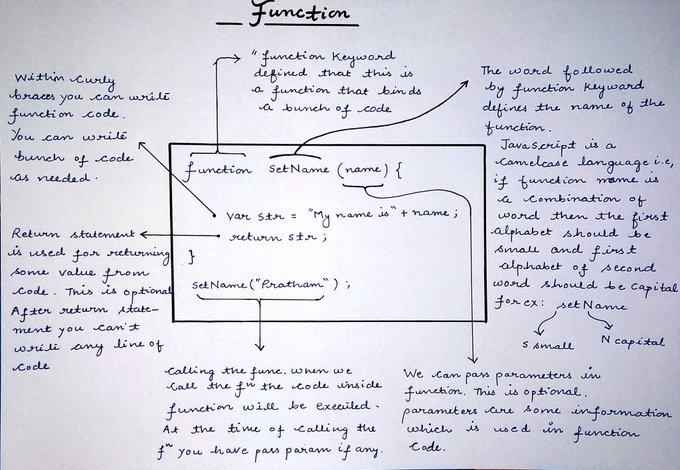 Function
" function Keyword
defined that this is
a function that binds
a bunch of code
Within Curly
braces you can write
function code.
You can write
bunch of code
as needed.
The word followed
by function Keyword
defines the name of the
function.
JavaScript is a
camelcase language i.e,
if function name is
a combination of
word then the first
alphabet should be
small and first
alphabet of second
word should be capital
For ex: setName
s small
N capital
function SetName (name) {
var str = "My name is" + name;
return str;
}
setName("Pratham");
Return statement
is used for returning
some value from
code. This is optional
After return state-
ment you can't
write any line of
code
calling the func. when we
call the fⁿ the code inside
function will be executed.
At the time of calling the
fⁿ you have pass param if any.
We can pass parameters in
function. This is optional.
parameters are some information
which is used in function
code.